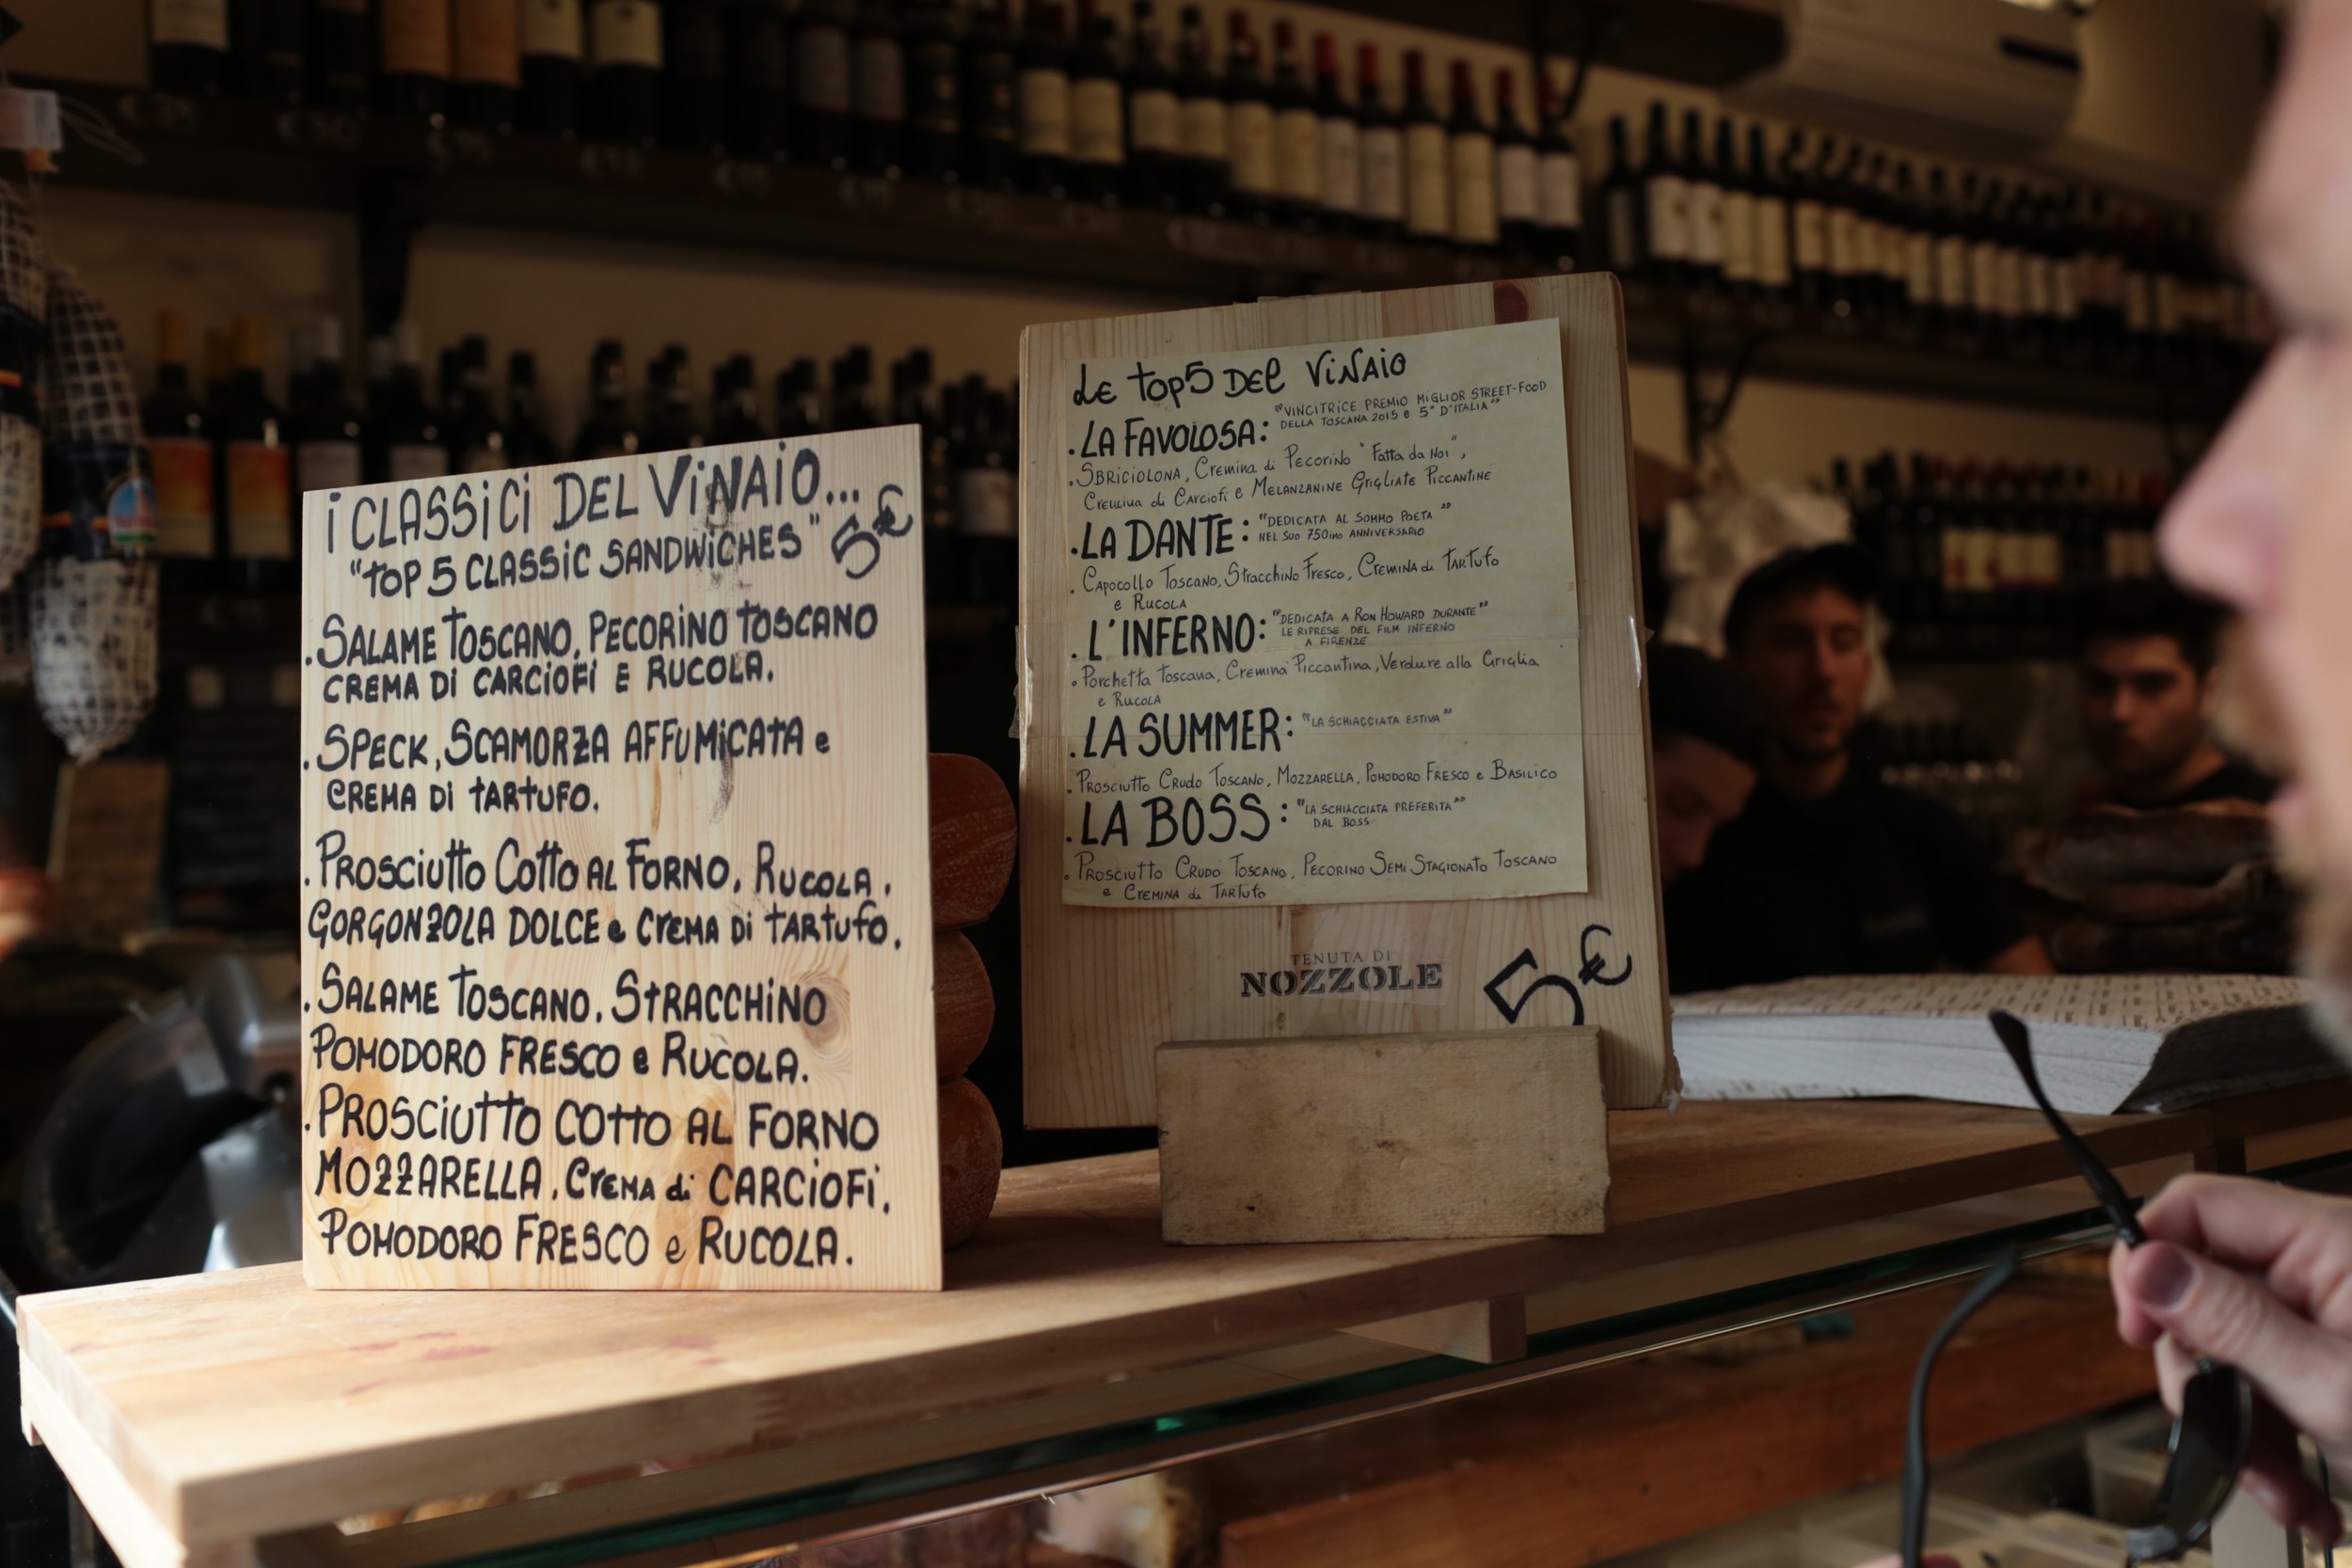 i CLASSiCi DEL ViNAiO...
"TOP 5 CLASSIC SANDWICHES" 5€
. SALAME TOSCANO, PECORINO TOSCANO
CREMA DI CARCIOFI E RUCOLA.
. SPECK, SCAMORZA AFFUMICATA e
CREMA DI TARTUFO.
. PROSCIUTTO COTTO AL FORNO, RUCOLA,
GORGONZOLA DOLCE e CREMA DI TARTUFO.
. SALAME TOSCANO, STRACCHINO
POMODORO FRESCO e RUCOLA.
. PROSCIUTTO COTTO AL FORNO
MOZZARELLA, CREMA di CARCIOFI,
POMODORO FRESCO e RUCOLA.
LE TOP5 DEL ViNAiO
. LA FAVOLOSA: "VINCITRICE PREMIO MIGLIOR STREET-FOOD
DELLA TOSCANA 2015 e 5° D'ITALIA"
. SBRICIOLONA, Cremina di Pecorino "Fatta da Noi",
Cremina di Carciofi e MELANZANINE GRIGLIATE PICCANTINE
. LA DANTE: "DEDICATA AL SOMMO POETA"
NEL SUO 750imo ANNIVERSARIO
. CAPOCOLLO TOSCANO, Stracchino Fresco, CREMINA di TARTUFO
e RUCOLA
. L'INFERNO: "DEDICATA A RON HOWARD DURANTE"
LE RIPRESE DEL FILM INFERNO
A FIRENZE
. Porchetta Toscana, Cremina Piccantina, Verdure alla Griglia
e RUCOLA
. LA SUMMER: "LA SCHIACCIATA ESTIVA"
. PROSCIUTTO CRUDO TOSCANO, MOZZARELLA, POMODORO FRESCO e BASILICO
. LA BOSS: "LA SCHIACCIATA PREFERITA"
DAL BOSS
. PROSCIUTTO CRUDO TOSCANO, PECORINO SEMI STAGIONATO TOSCANO
e CREMINA di TARTUFO
TENUTA DI
NOZZOLE
5€